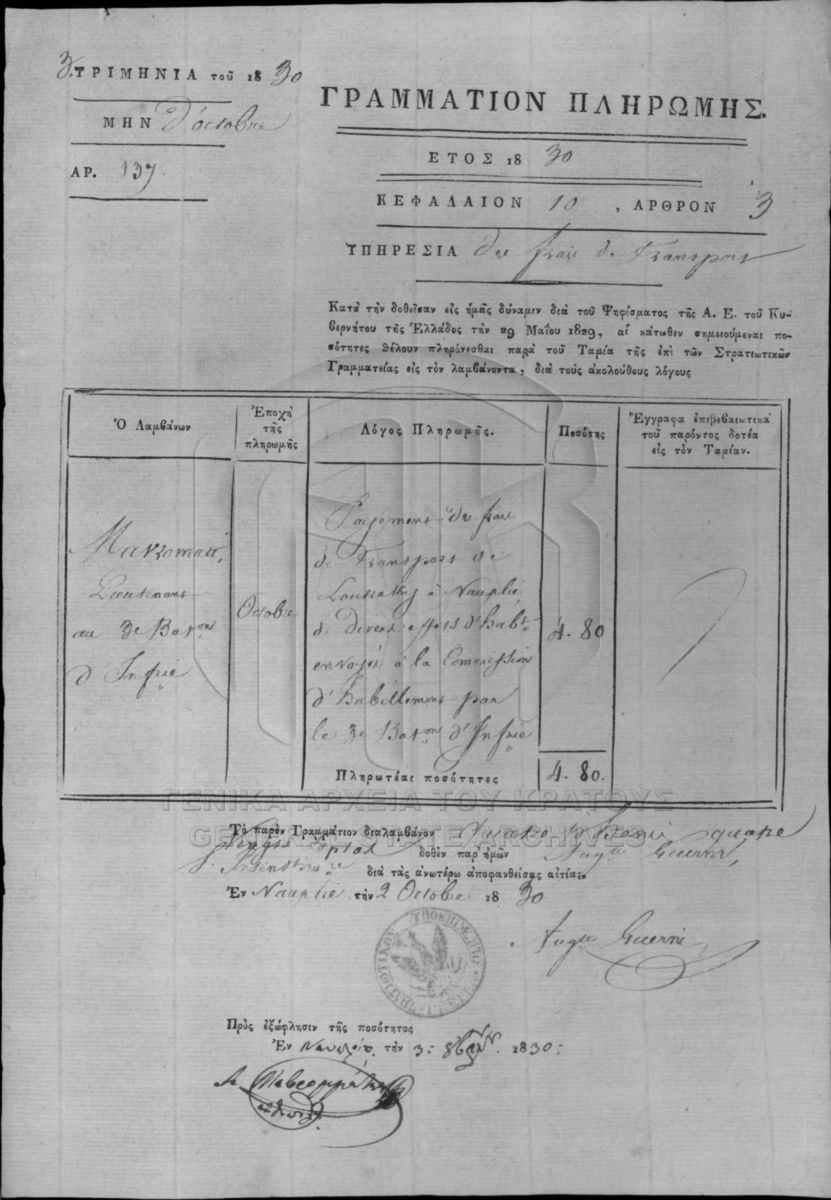 3. ΤΡΙΜΗΝΙΑ τοῦ 18 30
ΜΗΝ d'octobre
ΑΡ. 137.
ΓΡΑΜΜΑΤΙΟΝ ΠΛΗΡΩΜΗΣ.
ΕΤΟΣ 18 30
ΚΕΦΑΛΑΙΟΝ 10 , ΑΡΘΡΟΝ 3
ΥΠΗΡΕΣΙΑ des frais de Transport
Κατὰ τὴν δοθεῖσαν εἰς ἡμᾶς δύναμιν διὰ τοῦ Ψηφίσματος τῆς Α. Ε. τοῦ Κυ-
βερνήτου τῆς Ἑλλάδος τὴν 29 Μαΐου 1829, αἱ κάτωθεν σημειούμεναι πο-
σότητες θέλουν πληρόνεσθαι παρὰ τοῦ Ταμία τῆς ἐπὶ τῶν Στρατιωτικῶν
Γραμματείας εἰς τὸν λαμβάνοντα, διὰ τοὺς ἀκολούθους λόγους
Ὁ Λαμβάνων
Ἐποχὴ
τῆς
πληρωμῆς
Λόγος Πληρωμῆς.
Ποσότης
Ἔγγραφα ἐπιβεβαιωτικὰ
τοῦ παρόντος δοτέα
εἰς τὸν Ταμίαν.
Mavromati,
Lieutenant
au 3e Baton
d'Infrie
Octobre
Payement des frais
de Transport de
à Nauplie,
de divers effets d'habt
envoyés à la Commission
d'habillement par
le 3e Baton d'Infrie
4. 80
Πληρωτέαι ποσότητες
4. 80.
ΓΕΝΙΚΑ ΑΡΧΕΙΑ ΤΟΥ ΚΡΑΤΟΥΣ
GENERAL STATE ARCHIVES
Τὸ παρὸν Γραμμάτιον διαλαμβάνον quatre
δοθὲν παρ' ἡμῶν Augte Guerin,
διὰ τὰς ἀνωτέρω ἀποφανθείσας αἰτίας.
Ἐν Nauplie τὴν 2 Octobre 18 30
Augte Guerin,
Πρὸς ἐξώφλησιν τῆς ποσότητος
Ἐν Ναυπλίῳ. τὴν 3: 8βρίου 1830: